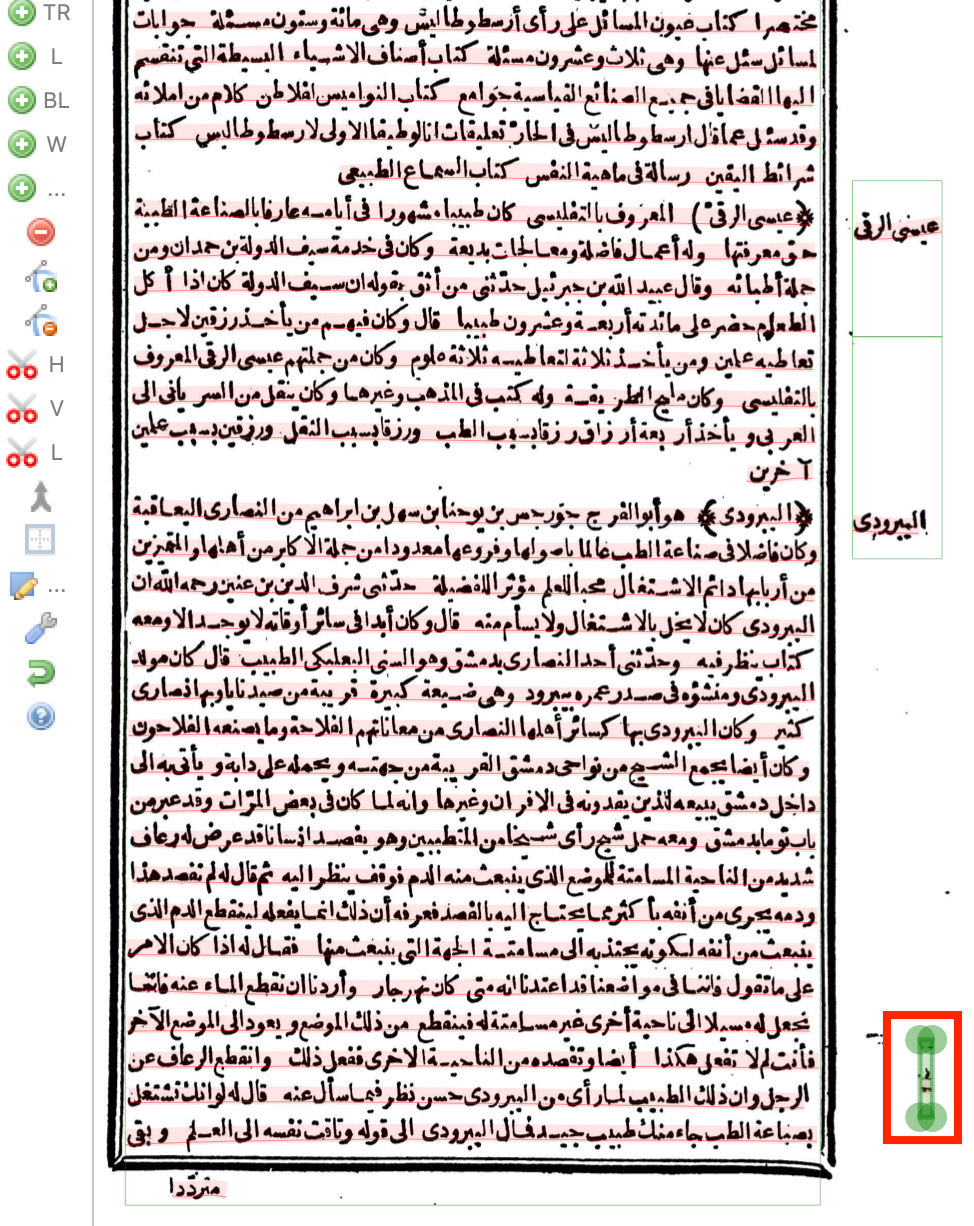 TR
L
BL
W
...
H
V
L
...
مختصرا كتاب عيون المسائل على رأى أرسطوطاليس وهى مائة وستون مسئلة جوابات
لمسائل سئل عنها وهى ثلاث وعشرون مسئلة كتاب أصناف الاشياء البسيطة التى تنقسم
اليها القضايا فى جميع الصنائع القياسية جوامع كتاب النواميس لافلاطن كلام من املائه
وقد سئل عما قال ارسطوطاليس فى الحار تعليقات انالوطيقا الاولى لارسطوطاليس كتاب
شرائط اليقين رسالة فى ماهية النفس كتاب السماع الطبيعى
﴿عيسى الرقى﴾ المعروف بالتفليسى كان طبيبا مشهورا فى أيامه عارفا بالصناعة الطبية
حق معرفتها وله أعمال فاضلة ومعالجات بديعة وكان فى خدمة سيف الدولة بن حمدان ومن
جملة أطبائه وقال عبيد الله بن جبرئيل حدّثنى من أثق بقوله ان سيف الدولة كان اذا أكل
الطعام حضر على مائدته أربعة وعشرون طبيبا قال وكان فيهم من يأخذ رزقين لاجل
تعاطيه علمين ومن يأخذ ثلاثة لتعاطيه ثلاثة علوم وكان من جملتهم عيسى الرقى المعروف
بالتفليسى وكان مليح الطريقة وله كتب فى المذهب وغيرها وكان ينقل من السريانى الى
العربى ويأخذ أربعة أرزاق رزقا بسبب الطب ورزقا بسبب النقل ورزقين بسبب علمين
آخرين
عيسى الرقى
﴿اليبرودى﴾ هو أبو الفرج جورجس بن يوحنا بن سهل بن ابراهيم من النصارى اليعاقبة
وكان فاضلا فى صناعة الطب عالما باصولها وفروعها معدودا من جملة الاكابر من أهلها والمتميزين
من أربابها دائم الاشتغال محبا للعلم مؤثرا للفضيلة حدّثنى شرف الدين بن عنين رحمه الله ان
اليبرودى كان لا يخل بالاشتغال ولا يسأم منه قال وكان أبدا فى سائر أوقاته لا يوجد الا ومعه
كتاب ينظر فيه وحدّثنى أحد النصارى بدمشق وهو السنى البعلبكى الطبيب قال كان مولد
اليبرودى ومنشؤه فى صدر عمره بيبرود وهى ضيعة كبيرة قريبة من صيدنايا وبها نصارى
كثير وكان اليبرودى بها كسائر أهلها النصارى من معاناتهم الفلاحة وما يصنعه الفلاحون
وكان أيضا يجمع الشيح من نواحى دمشق القريبة من جهته ويحمله على دابة ويأتى به الى
داخل دمشق يبيعه للذين يقدونه فى الافران وغيرها وانه لما كان فى بعض المرّات وقد عبر من
باب توما بدمشق ومعه حمل شيح رأى شيخا من المتطببين وهو يفصد انسانا قد عرض له رعاف
شديد من الناحية المسامتة للموضع الذى ينبعث منه الدم فوقف ينظر اليه ثم قال له لم تفصد هذا
ودمه يجرى من أنفه بأكثر مما يحتاج اليه بالفصد فعرفه أن ذلك انما يفعله لينقطع الدم الذى
ينبعث من أنفه لكونه يجتذبه الى مسامتة الجهة التى ينبعث منها فقال له اذا كان الامر
على ما تقول فاننا فى مواضعنا قد اعتدنا انه متى كان نهر جار وأردنا ان نقطع الماء عنه فاننا
نجعل له مسيلا الى ناحية أخرى غير مسامتة له فينقطع من ذلك الموضع ويعود الى الموضع الآخر
فأنت لم لا تفعل هكذا أيضا وتفصده من الناحية الاخرى ففعل ذلك وانقطع الرعاف عن
الرجل وان ذلك الطبيب لما رأى من اليبرودى حسن نظر فيما سأل عنه قال له لو انك تشتغل
بصناعة الطب جاء منك طبيب جيد فمال اليبرودى الى قوله وتاقت نفسه الى العلم وبقى
متردّدا
اليبرودى